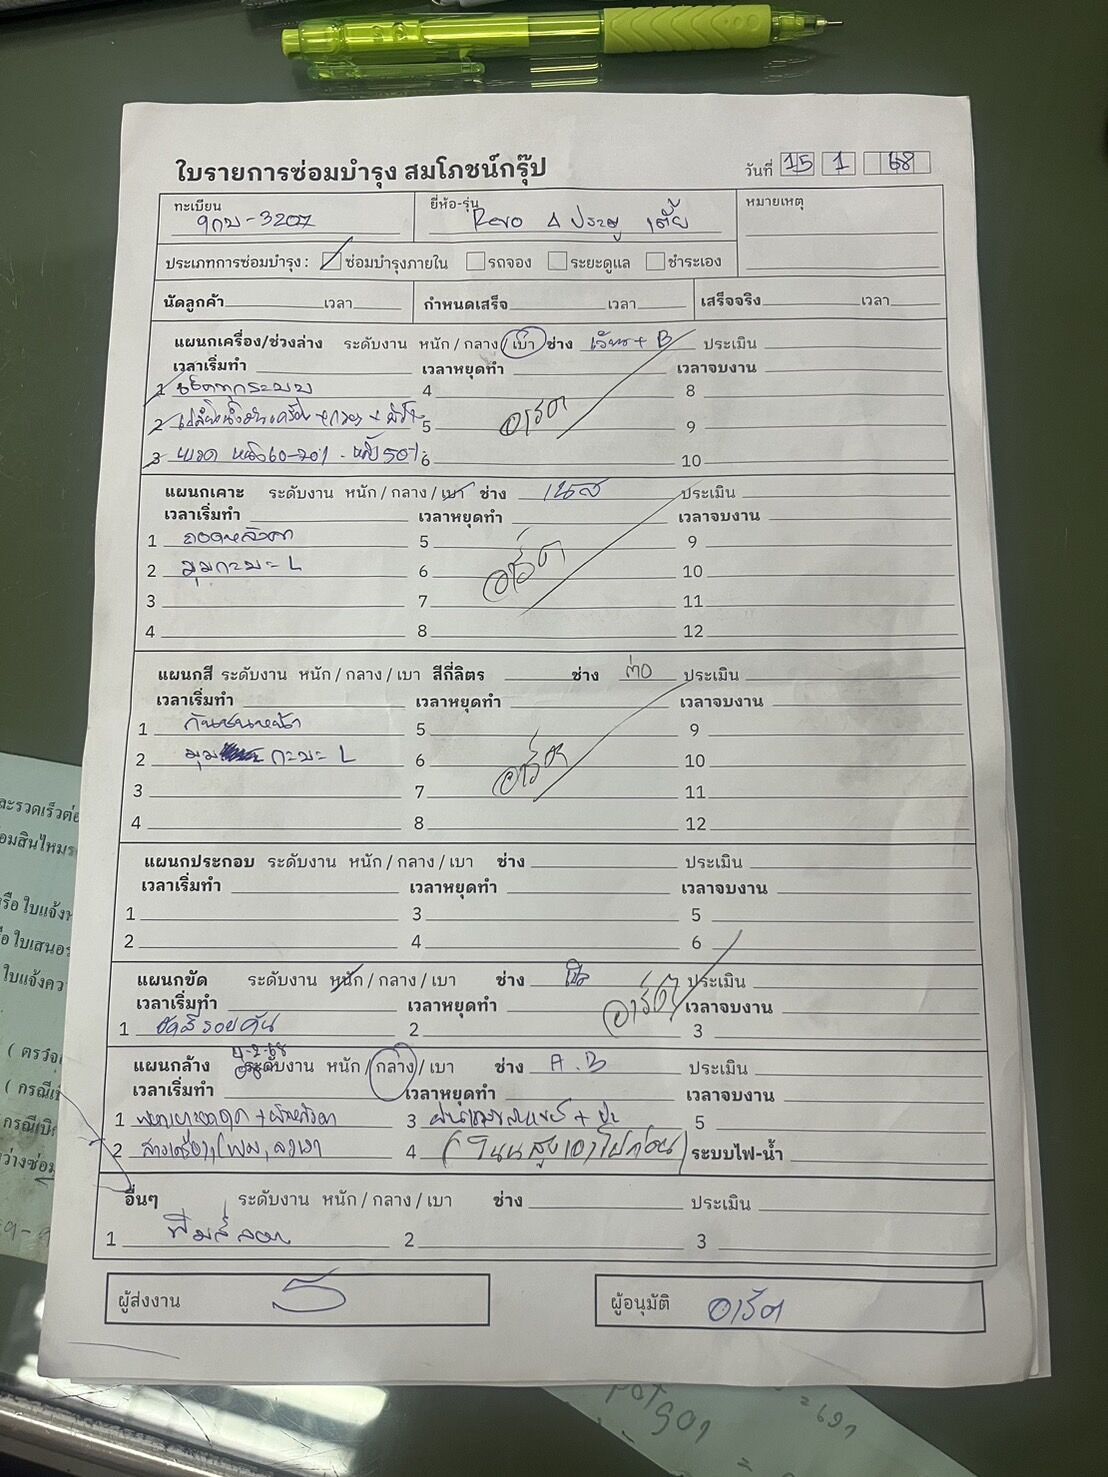 ใบรายการซ่อมบำรุง สมโภชน์กรุ๊ป วันที่ 15 1 68
ทะเบียน ยี่ห้อ-รุ่น หมายเหตุ
9กบ-3207 Revo 4 ประตู เตี้ย
ประเภทการซ่อมบำรุง : ซ่อมบำรุงภายใน รถจอง ระยะดูแล ชำระเอง
นัดลูกค้า เวลา กำหนดเสร็จ เวลา เสร็จจริง เวลา
แผนกเครื่อง/ช่วงล่าง ระดับงาน หนัก / กลาง / เบา ช่าง + B ประเมิน
เวลาเริ่มทำ เวลาหยุดทำ เวลาจบงาน
1 เช็คทุกระบบ 4 8
2 5 อาร์ต 9
3 เบรค หน้า 60-70% . หลัง 50% 6 10
แผนกเคาะ ระดับงาน หนัก / กลาง / เบา ช่าง ประเมิน
เวลาเริ่มทำ เวลาหยุดทำ เวลาจบงาน
1 5 9
2 มุมกะบะ L 6 อาร์ต 10
3 7 11
4 8 12
แผนกสี ระดับงาน หนัก / กลาง / เบา สีกี่ลิตร ช่าง ต่อ ประเมิน
เวลาเริ่มทำ เวลาหยุดทำ เวลาจบงาน
1 กันชนหน้า 5 9
2 มุม กะบะ L 6 อาร์ต 10
3 7 11
4 8 12
แผนกประกอบ ระดับงาน หนัก / กลาง / เบา ช่าง ประเมิน
เวลาเริ่มทำ เวลาหยุดทำ เวลาจบงาน
1 3 5
2 4 6
แผนกขัด ระดับงาน หนัก / กลาง / เบา ช่าง อาร์ต ประเมิน
เวลาเริ่มทำ เวลาหยุดทำ เวลาจบงาน
1 ขัดสีรอบคัน 2 3
4-2-68
แผนกล้าง ระดับงาน หนัก / กลาง / เบา ช่าง A.B ประเมิน
เวลาเริ่มทำ เวลาหยุดทำ เวลาจบงาน
1 3 5
2 4 ระบบไฟ-น้ำ
อื่นๆ ระดับงาน หนัก / กลาง / เบา ช่าง ประเมิน
1 2 3
ผู้ส่งงาน ผู้อนุมัติ อาร์ต